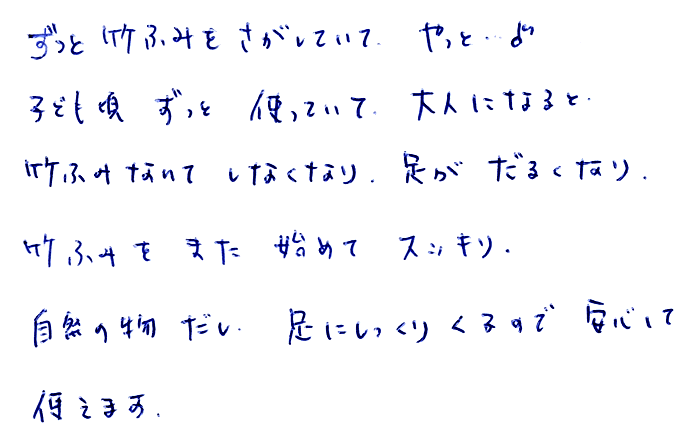 ずっと竹ふみをさがしていて. やっと…
子ども頃 ずっと 使っていて. 大人になると.
竹ふみないて しなくなり. 足が だるくなり.
竹ふみを また 始めて スッキリ.
自然の物 だし. 足にしっくりくるので 安心して
使えます.